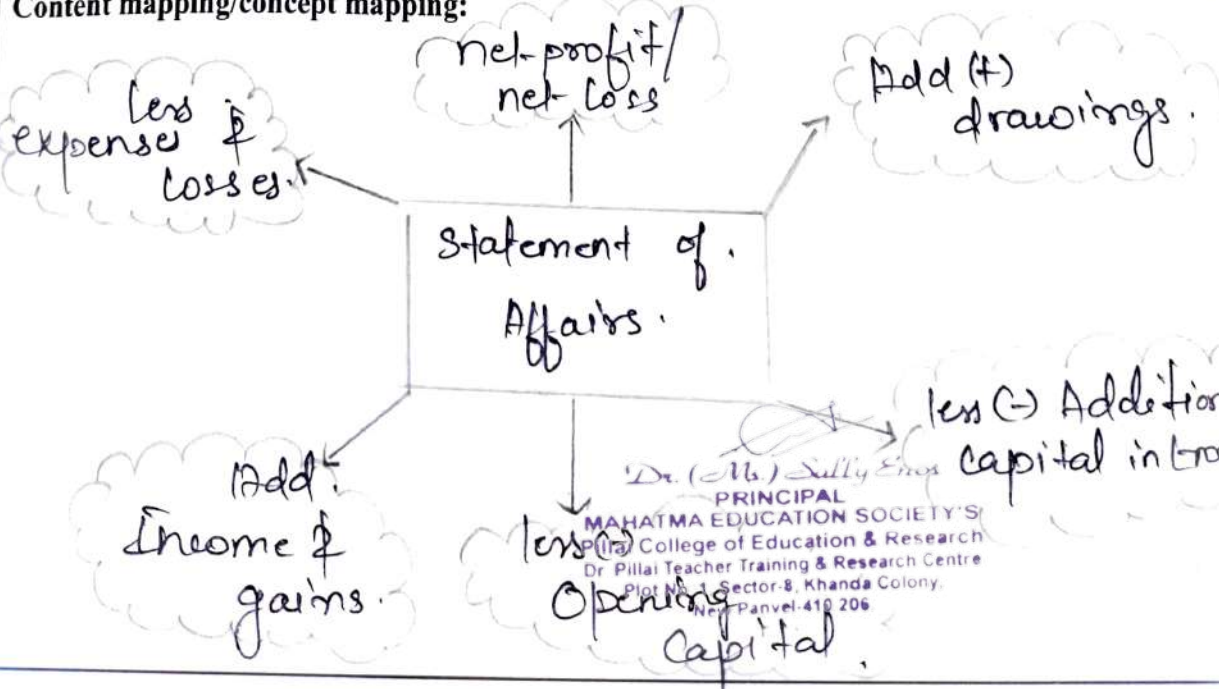 Content mapping/concept mapping:
net-profit/
net-loss
Add (+)
drawings.
less
expenses &
losses.
Statement of.
Affairs.
less (-) Addition
capital intro
Add:
Income &
gains.
less (-)
Opening
Capital.
Dr. (Ms.) Sally Enos
PRINCIPAL
MAHATMA EDUCATION SOCIETY'S
Pillai College of Education & Research
Dr Pillai Teacher Training & Research Centre
Plot No. 1, Sector-8, Khanda Colony,
New Panvel-410 206